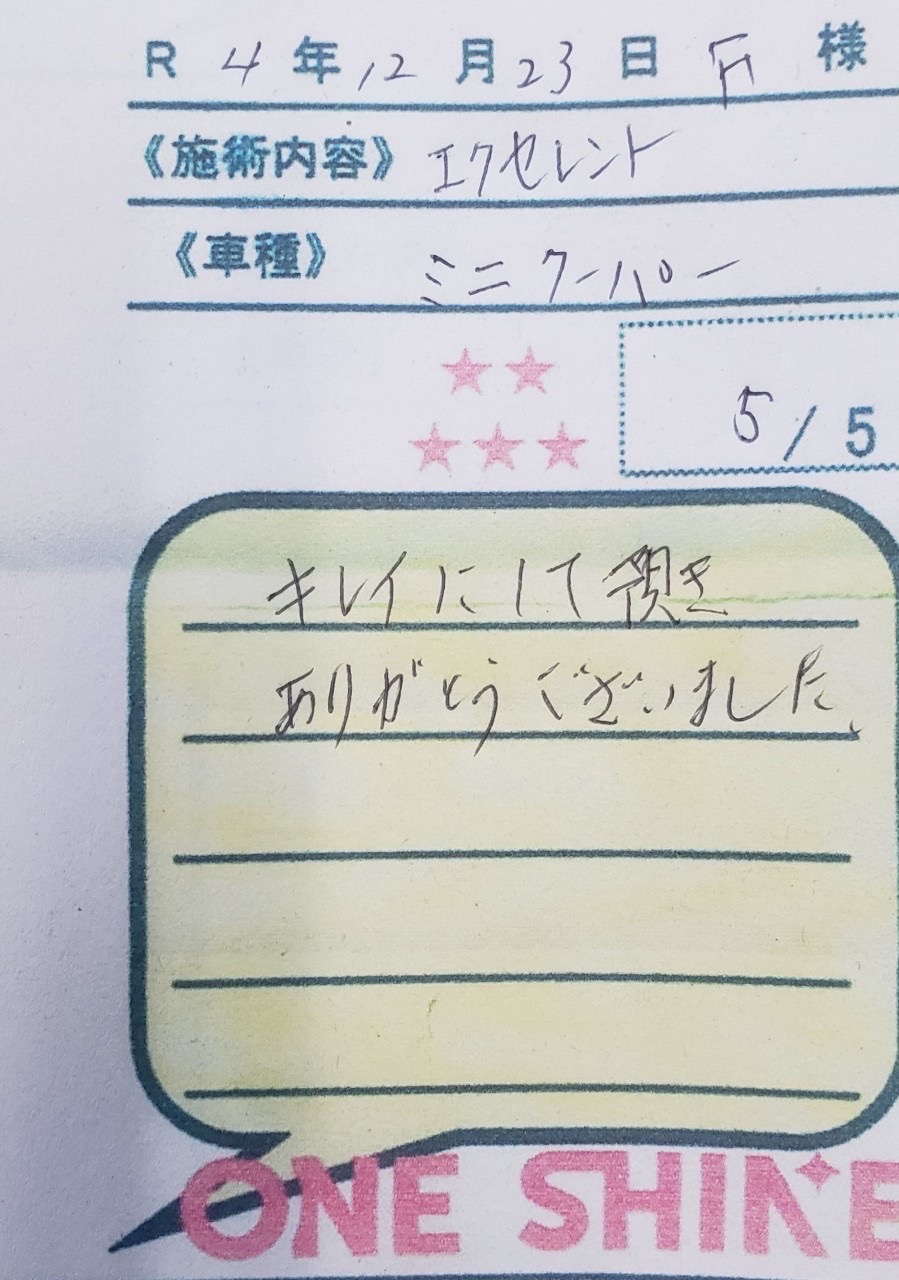 R 4 年 12 月 23 日 F 様
《施術内容》 エクセレント
《車種》 ミニクーパー
5 / 5
キレイにして頂き
ありがとうございました。
ONE SHINE